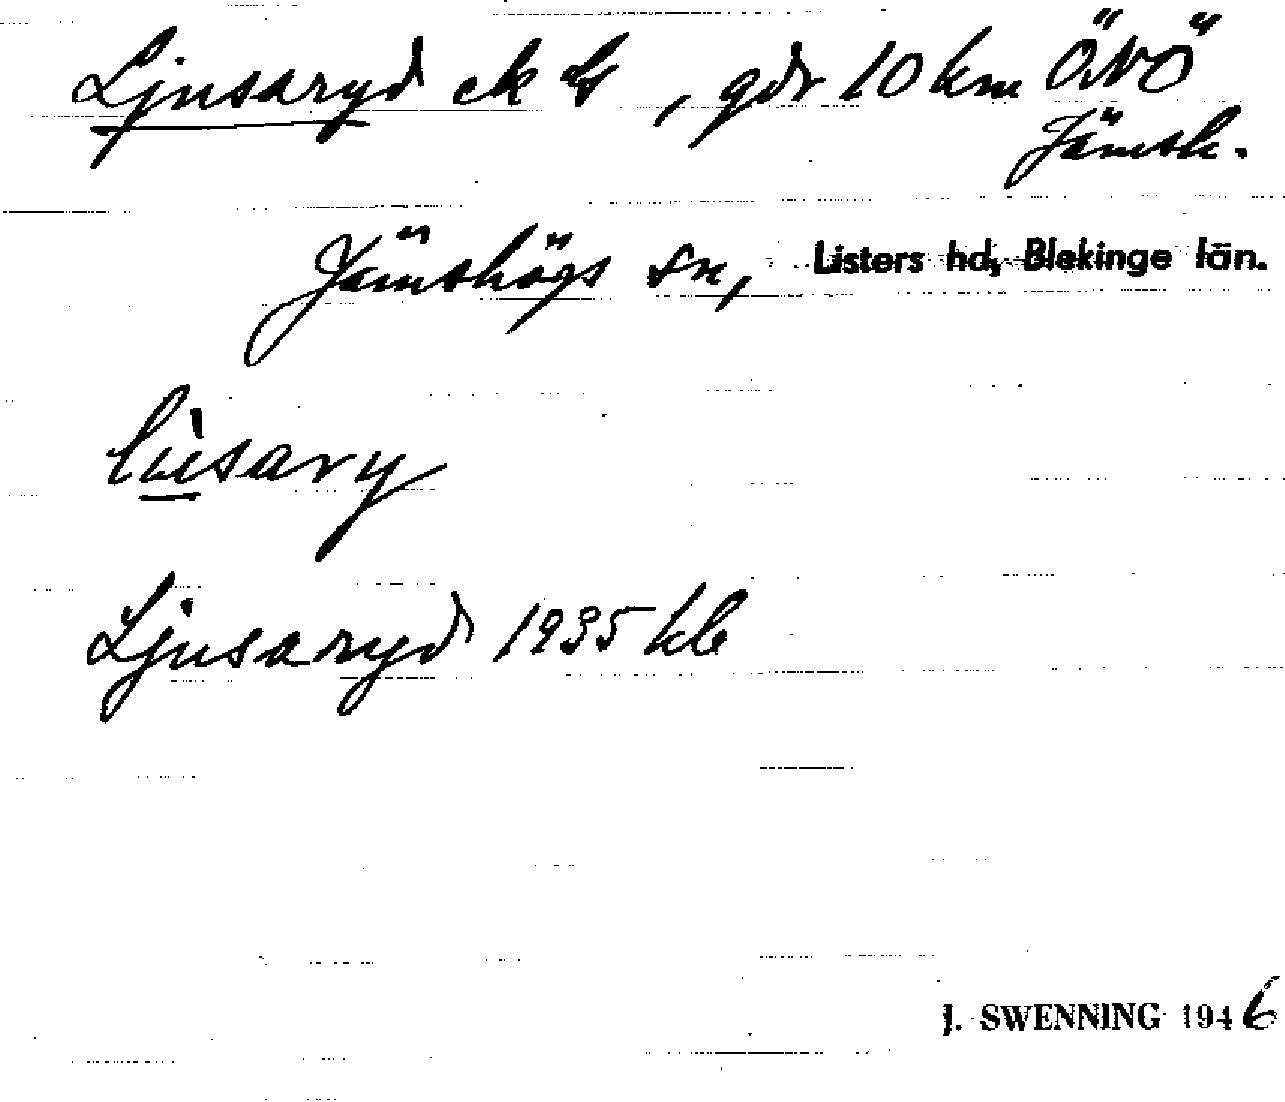 Ljusaryd ek by, gdr 10 km ÖNÖ
Jämsh.
Jämshögs sn, Listers hd, Blekinge län.
lüsary
Ljusaryd 1935 kb
J. SWENNING 1946